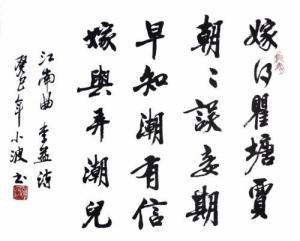 嫁得瞿塘賈
朝〻誤妾期
早知潮有信
嫁與弄潮兒
江南曲 李益詩
癸巳年 小波书